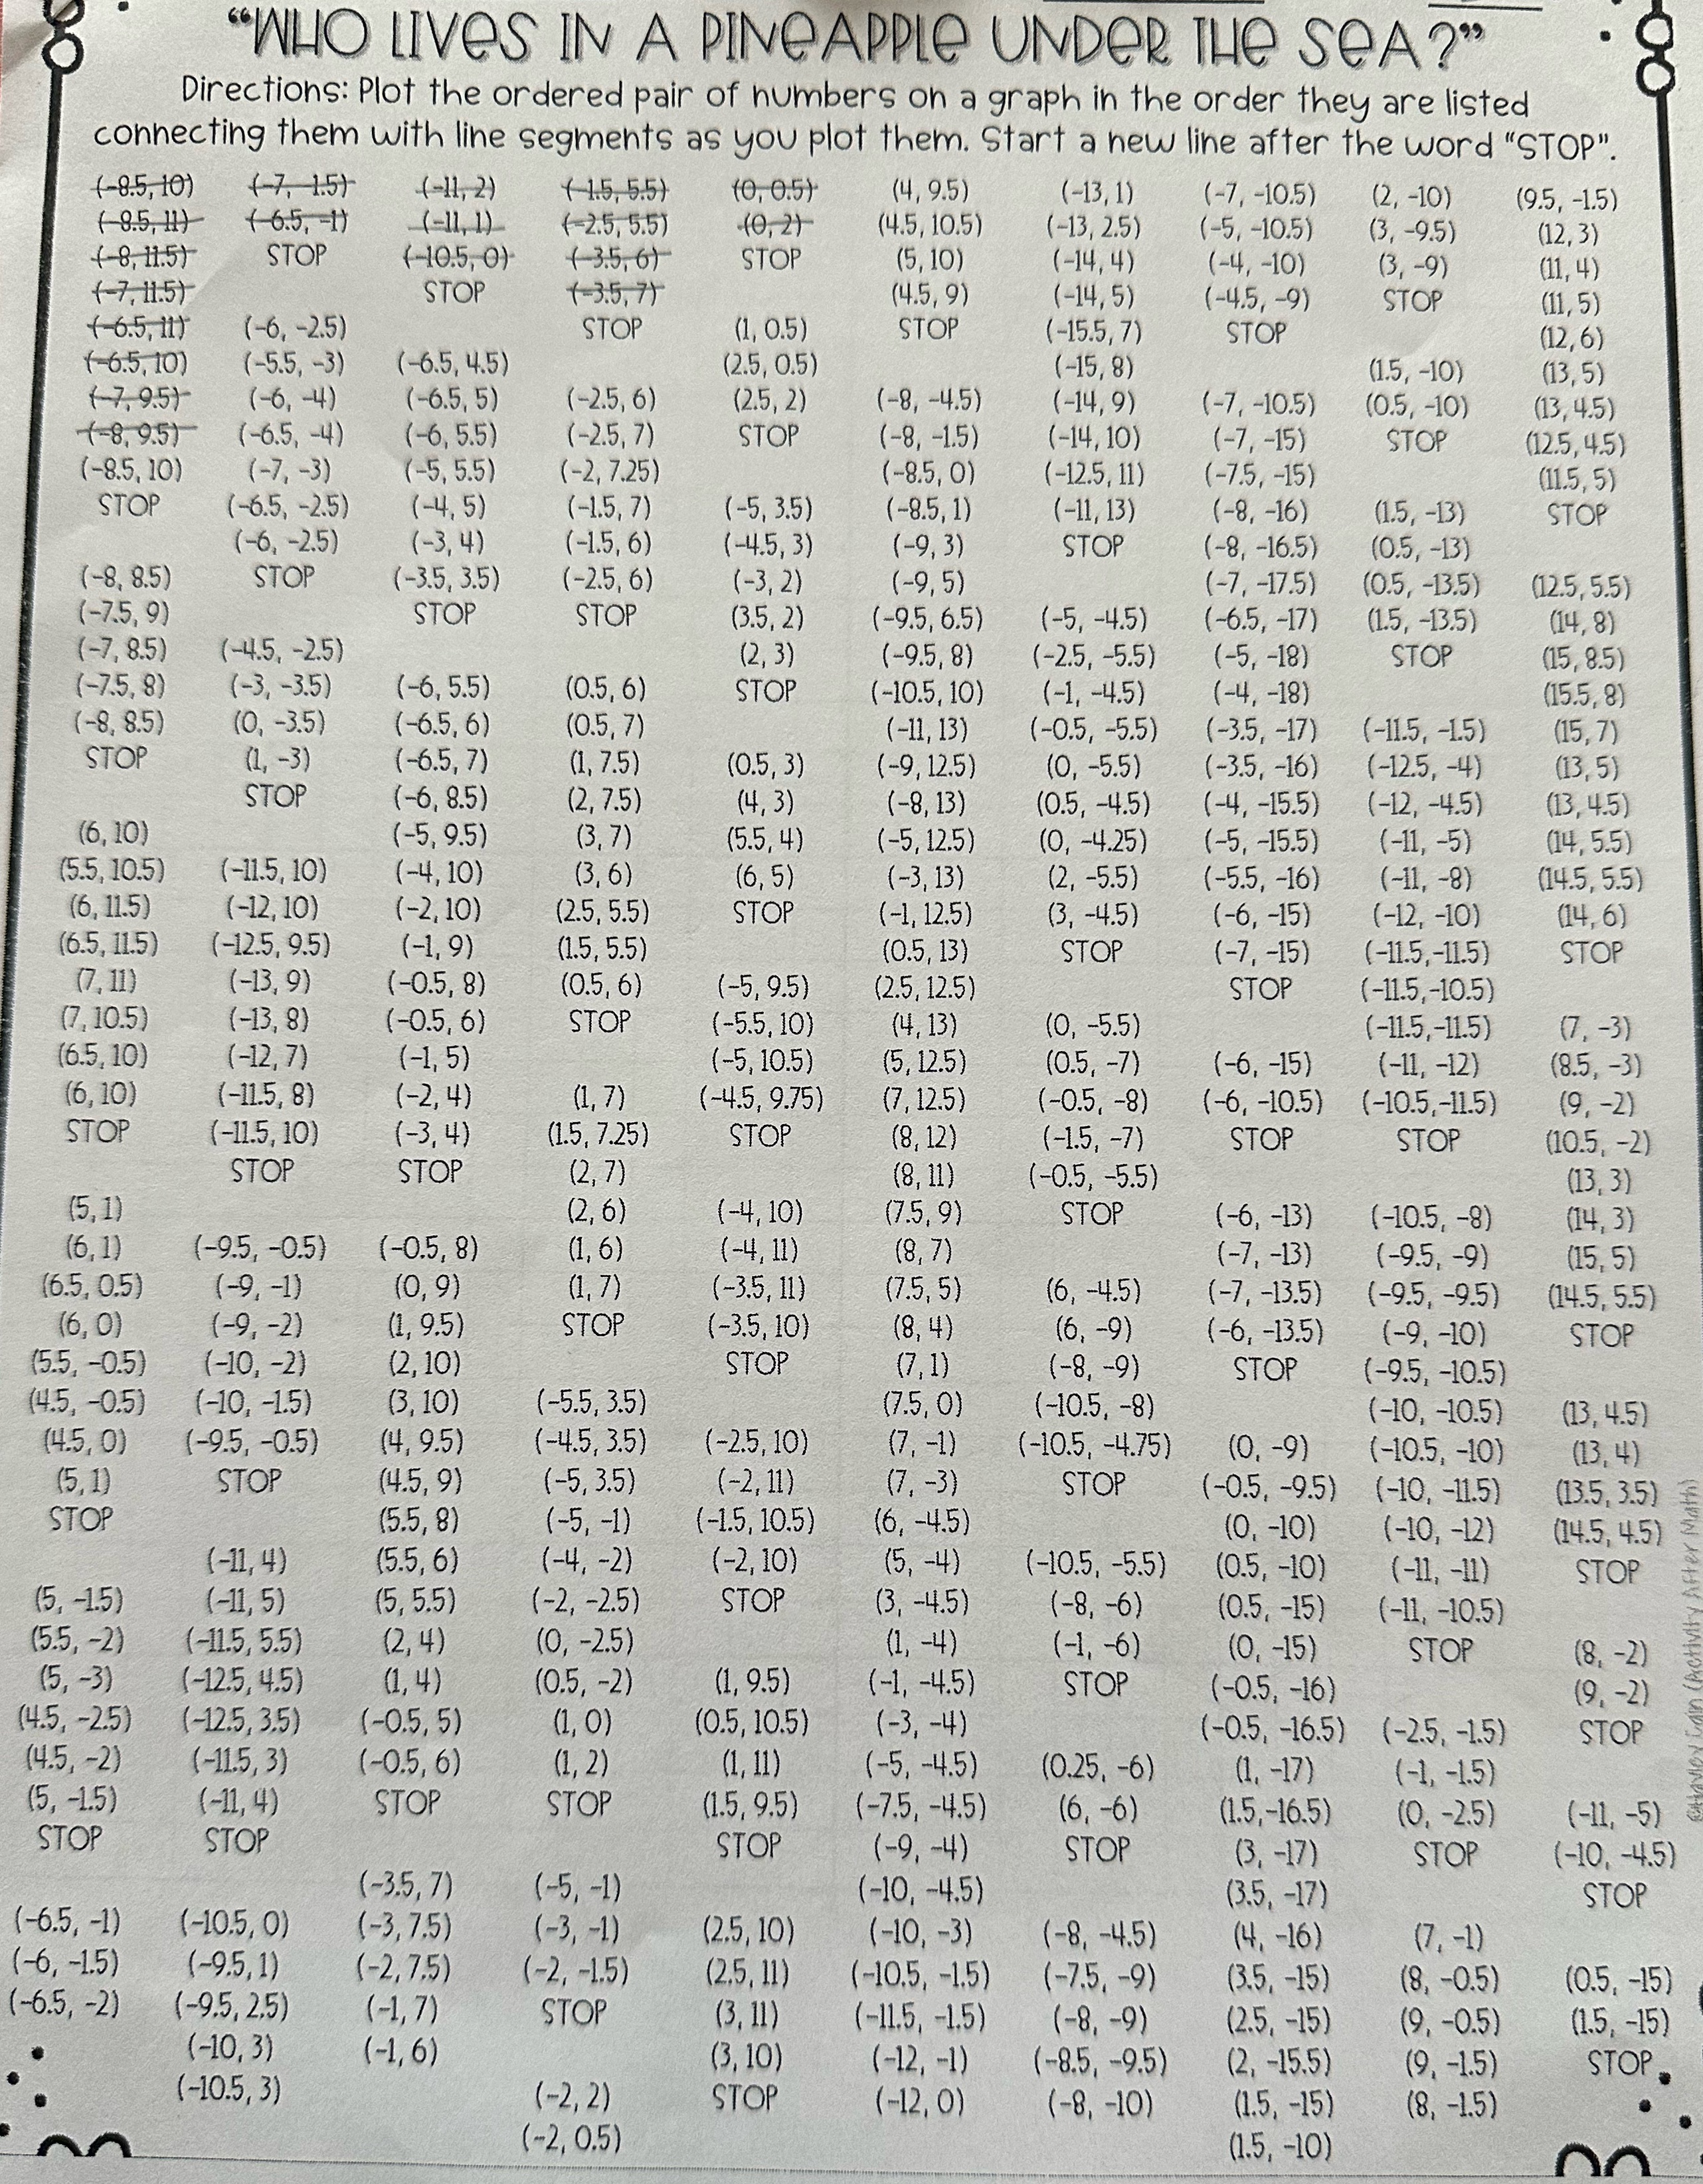 “WHO LIVES IN A PINEAPPLE UNDER THE SEA?”
Directions: Plot the ordered pair of numbers on a graph in the order they are listed
connecting them with line segments as you plot them. Start a new line after the word "STOP".
(-8.5, 10)
(-8.5, 11)
(-8, 11.5)
(-7, 11.5)
(-6.5, 11)
(-6.5, 10)
(-7, 9.5)
(-8, 9.5)
(-8.5, 10)
STOP
(-8, 8.5)
(-7.5, 9)
(-7, 8.5)
(-7.5, 8)
(-8, 8.5)
STOP
(6, 10)
(5.5, 10.5)
(6, 11.5)
(6.5, 11.5)
(7, 11)
(7, 10.5)
(6.5, 10)
(6, 10)
STOP
(5, 1)
(6, 1)
(6.5, 0.5)
(6, 0)
(5.5, -0.5)
(4.5, -0.5)
(4.5, 0)
(5, 1)
STOP
(5, -1.5)
(5.5, -2)
(5, -3)
(4.5, -2.5)
(4.5, -2)
(5, -1.5)
STOP
(-6.5, -1)
(-6, -1.5)
(-6.5, -2)
(-7, -1.5)
(-6.5, -1)
STOP
(-6, -2.5)
(-5.5, -3)
(-6, -4)
(-6.5, -4)
(-7, -3)
(-6.5, -2.5)
(-6, -2.5)
STOP
(-4.5, -2.5)
(-3, -3.5)
(0, -3.5)
(1, -3)
STOP
(-11.5, 10)
(-12, 10)
(-12.5, 9.5)
(-13, 9)
(-13, 8)
(-12, 7)
(-11.5, 8)
(-11.5, 10)
STOP
(-9.5, -0.5)
(-9, -1)
(-9, -2)
(-10, -2)
(-10, -1.5)
(-9.5, -0.5)
STOP
(-11, 4)
(-11, 5)
(-11.5, 5.5)
(-12.5, 4.5)
(-12.5, 3.5)
(-11.5, 3)
(-11, 4)
STOP
(-10.5, 0)
(-9.5, 1)
(-9.5, 2.5)
(-10, 3)
(-10.5, 3)
(-11, 2)
(-11, 1)
(-10.5, 0)
STOP
(-6.5, 4.5)
(-6.5, 5)
(-6, 5.5)
(-5, 5.5)
(-4, 5)
(-3, 4)
(-3.5, 3.5)
STOP
(-6, 5.5)
(-6.5, 6)
(-6.5, 7)
(-6, 8.5)
(-5, 9.5)
(-4, 10)
(-2, 10)
(-1, 9)
(-0.5, 8)
(-0.5, 6)
(-1, 5)
(-2, 4)
(-3, 4)
STOP
(-0.5, 8)
(0, 9)
(1, 9.5)
(2, 10)
(3, 10)
(4, 9.5)
(4.5, 9)
(5.5, 8)
(5.5, 6)
(5, 5.5)
(2, 4)
(1, 4)
(-0.5, 5)
(-0.5, 6)
STOP
(-3.5, 7)
(-3, 7.5)
(-2, 7.5)
(-1, 7)
(-1, 6)
(-1.5, 5.5)
(-2.5, 5.5)
(-3.5, 6)
(-3.5, 7)
STOP
(-2.5, 6)
(-2.5, 7)
(-2, 7.25)
(-1.5, 7)
(-1.5, 6)
(-2.5, 6)
STOP
(0.5, 6)
(0.5, 7)
(1, 7.5)
(2, 7.5)
(3, 7)
(3, 6)
(2.5, 5.5)
(1.5, 5.5)
(0.5, 6)
STOP
(1, 7)
(1.5, 7.25)
(2, 7)
(2, 6)
(1, 6)
(1, 7)
STOP
(-5.5, 3.5)
(-4.5, 3.5)
(-5, 3.5)
(-5, -1)
(-4, -2)
(-2, -2.5)
(0, -2.5)
(0.5, -2)
(1, 0)
(1, 2)
STOP
(-5, -1)
(-3, -1)
(-2, -1.5)
STOP
(-2, 2)
(-2, 0.5)
(0, 0.5)
(0, 2)
STOP
(1, 0.5)
(2.5, 0.5)
(2.5, 2)
STOP
(-5, 3.5)
(-4.5, 3)
(-3, 2)
(3.5, 2)
(2, 3)
STOP
(0.5, 3)
(4, 3)
(5.5, 4)
(6, 5)
STOP
(-5, 9.5)
(-5.5, 10)
(-5, 10.5)
(-4.5, 9.75)
STOP
(-4, 10)
(-4, 11)
(-3.5, 11)
(-3.5, 10)
STOP
(-2.5, 10)
(-2, 11)
(-1.5, 10.5)
(-2, 10)
STOP
(1, 9.5)
(0.5, 10.5)
(1, 11)
(1.5, 9.5)
STOP
(2.5, 10)
(2.5, 11)
(3, 11)
(3, 10)
STOP
(4, 9.5)
(4.5, 10.5)
(5, 10)
(4.5, 9)
STOP
(-8, -4.5)
(-8, -1.5)
(-8.5, 0)
(-8.5, 1)
(-9, 3)
(-9, 5)
(-9.5, 6.5)
(-9.5, 8)
(-10.5, 10)
(-11, 13)
(-9, 12.5)
(-8, 13)
(-5, 12.5)
(-3, 13)
(-1, 12.5)
(0.5, 13)
(2.5, 12.5)
(4, 13)
(5, 12.5)
(7, 12.5)
(8, 12)
(8, 11)
(7.5, 9)
(8, 7)
(7.5, 5)
(8, 4)
(7, 1)
(7.5, 0)
(7, -1)
(7, -3)
(6, -4.5)
(5, -4)
(3, -4.5)
(1, -4)
(-1, -4.5)
(-3, -4)
(-5, -4.5)
(-7.5, -4.5)
(-9, -4)
(-10, -4.5)
(-10, -3)
(-10.5, -1.5)
(-11.5, -1.5)
(-12, -1)
(-12, 0)
(-13, 1)
(-13, 2.5)
(-14, 4)
(-14, 5)
(-15.5, 7)
(-15, 8)
(-14, 9)
(-14, 10)
(-12.5, 11)
(-11, 13)
STOP
(-5, -4.5)
(-2.5, -5.5)
(-1, -4.5)
(-0.5, -5.5)
(0, -5.5)
(0.5, -4.5)
(0, -4.25)
(2, -5.5)
(3, -4.5)
STOP
(0, -5.5)
(0.5, -7)
(-0.5, -8)
(-1.5, -7)
(-0.5, -5.5)
STOP
(6, -4.5)
(6, -9)
(-8, -9)
(-10.5, -8)
(-10.5, -4.75)
STOP
(-10.5, -5.5)
(-8, -6)
(-1, -6)
STOP
(0.25, -6)
(6, -6)
STOP
(-8, -4.5)
(-7.5, -9)
(-8, -9)
(-8.5, -9.5)
(-8, -10)
(-7, -10.5)
(-5, -10.5)
(-4, -10)
(-4.5, -9)
STOP
(-7, -10.5)
(-7, -15)
(-7.5, -15)
(-8, -16)
(-8, -16.5)
(-7, -17.5)
(-6.5, -17)
(-5, -18)
(-4, -18)
(-3.5, -17)
(-3.5, -16)
(-4, -15.5)
(-5, -15.5)
(-5.5, -16)
(-6, -15)
(-7, -15)
STOP
(-6, -15)
(-6, -10.5)
STOP
(-6, -13)
(-7, -13)
(-7, -13.5)
(-6, -13.5)
STOP
(0, -9)
(-0.5, -9.5)
(0, -10)
(0.5, -10)
(0.5, -15)
(0, -15)
(-0.5, -16)
(-0.5, -16.5)
(1, -17)
(1.5,-16.5)
(3, -17)
(3.5, -17)
(4, -16)
(3.5, -15)
(2.5, -15)
(2, -15.5)
(1.5, -15)
(1.5, -10)
(2, -10)
(3, -9.5)
(3, -9)
STOP
(1.5, -10)
(0.5, -10)
STOP
(1.5, -13)
(0.5, -13)
(0.5, -13.5)
(1.5, -13.5)
STOP
(-11.5, -1.5)
(-12.5, -4)
(-12, -4.5)
(-11, -5)
(-11, -8)
(-12, -10)
(-11.5,-11.5)
(-11.5,-10.5)
(-11.5,-11.5)
(-11, -12)
(-10.5,-11.5)
STOP
(-10.5, -8)
(-9.5, -9)
(-9.5, -9.5)
(-9, -10)
(-9.5, -10.5)
(-10, -10.5)
(-10.5, -10)
(-10, -11.5)
(-10, -12)
(-11, -11)
(-11, -10.5)
STOP
(-2.5, -1.5)
(-1, -1.5)
(0, -2.5)
STOP
(7, -1)
(8, -0.5)
(9, -0.5)
(9, -1.5)
(8, -1.5)
(9.5, -1.5)
(12, 3)
(11, 4)
(11, 5)
(12, 6)
(13, 5)
(13, 4.5)
(12.5, 4.5)
(11.5, 5)
STOP
(12.5, 5.5)
(14, 8)
(15, 8.5)
(15.5, 8)
(15, 7)
(13, 5)
(13, 4.5)
(14, 5.5)
(14.5, 5.5)
(14, 6)
STOP
(7, -3)
(8.5, -3)
(9, -2)
(10.5, -2)
(13, 3)
(14, 3)
(15, 5)
(14.5, 5.5)
STOP
(13, 4.5)
(13, 4)
(13.5, 3.5)
(14.5, 4.5)
STOP
(8, -2)
(9, -2)
STOP
(-11, -5)
(-10, -4.5)
STOP
(0.5, -15)
(1.5, -15)
STOP
(Activity After Math)